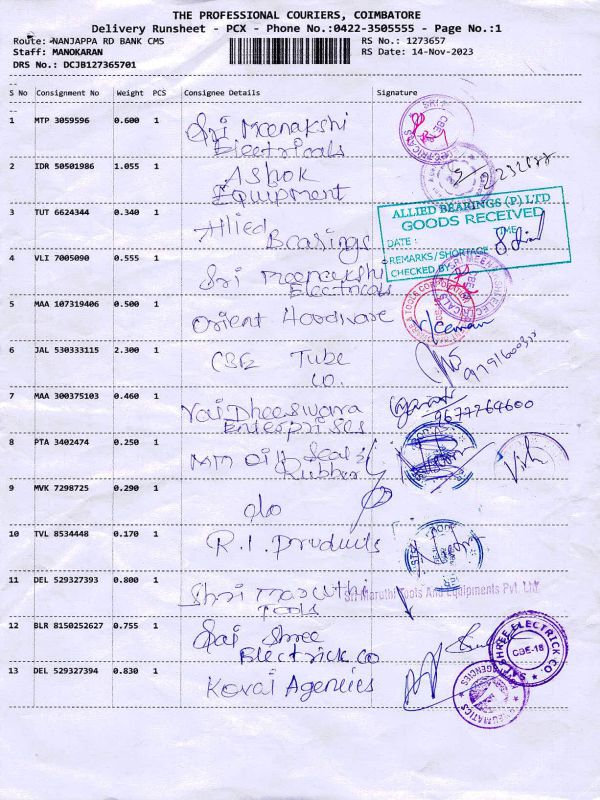 THE PROFESSIONAL COURIERS, COIMBATORE
Delivery Runsheet - PCX - Phone No.:0422-3505555 - Page No.:1
Route: NANJAPPA RD BANK CMS RS No.: 1273657
Staff: MANOKARAN RS Date: 14-Nov-2023
DRS No.: DCJB127365701
S No Consignment No Weight PCS Consignee Details Signature
1 MTP 3059596 0.600 1 Sri Meenakshi
Electricals
2 IDR 50501986 1.055 1 Ashok
Equipment
3 TUT 6624344 0.340 1 Allied
Bearings
ALLIED BEARINGS (P) LTD
GOODS RECEIVED
DATE : TIME
REMARKS/SHORTAGE
CHECKED BY
4 VLI 7005090 0.555 1 Sri Meenakshi
Electricals
5 MAA 107319406 0.500 1 Orient Hardware
6 JAL 530333115 2.300 1 CBE Tube
co.
9791600310
7 MAA 300375103 0.460 1
Enterprises
9677269600
8 PTA 3402474 0.250 1 MM Oil Seal &
Rubber
9 MVK 7298725 0.290 1 do
10 TVL 8534448 0.170 1 R.I. Products
11 DEL 529327393 0.800 1 Shri Maruthi
Tools
Sri Maruthi Tools And Equipments Pvt. Ltd
12 BLR 8150252627 0.755 1 Sai Shree
Electrick.co
SAI SHREE ELECTRIC CO.
CBE-18
13 DEL 529327394 0.830 1 Kovai Agencies